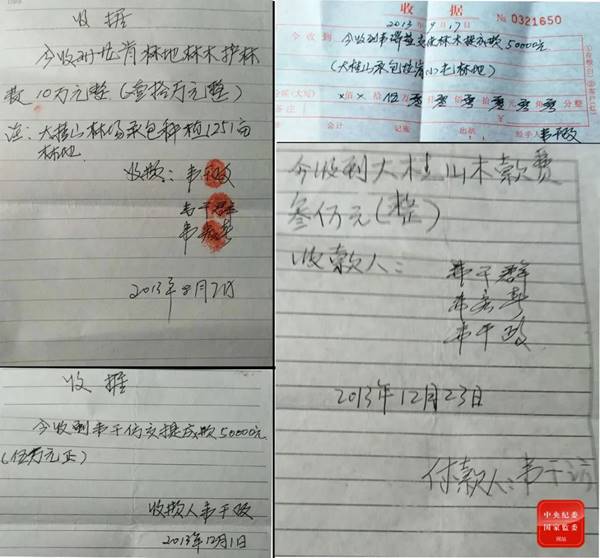 收据
今收到 岩林地林木护林
款10万元整(壹拾万元整)
注:大桂山林场承包种植1251亩
林地.
收款:韦干政
韦干群
韦
2013年8月7日
收据
2013年9月17
№ 0321650
今收到 今收到韦 交伐林木提成款50000元
(大桂山承包 岩小屯林地)
金额(大写) ×佰×拾伍万零仟零佰零拾零元零角零分整
备注
会计 记账 出纳 经手人 韦干政
今收到大桂山木款费
叁仟元(整)
收款人:
韦干群
韦
韦干政
2013年12月23日
付款人:韦干
收据
今收到韦干 交提成款50000元
(伍万元正)
收款人韦干政
2013年12月1日
中央纪委
国家监委
网站